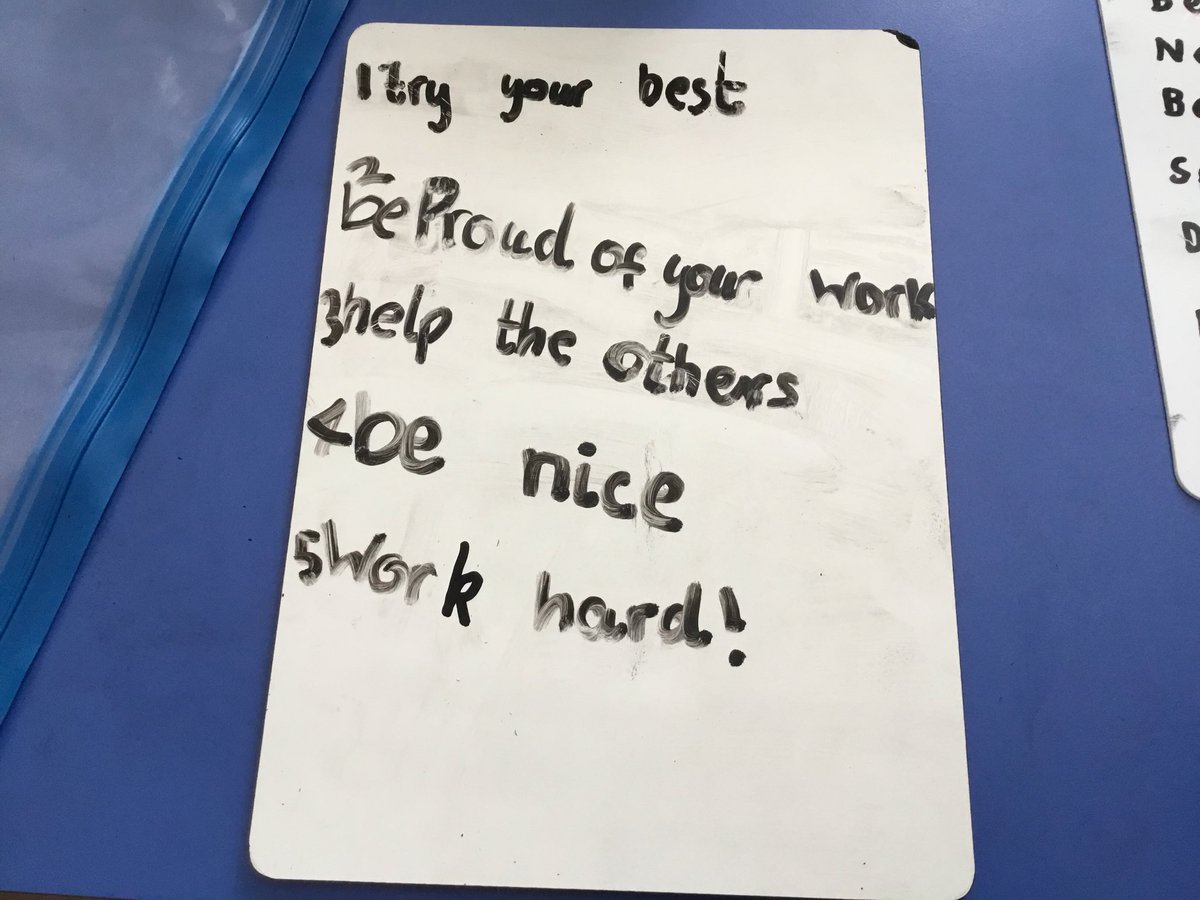 1 try your best
2
be Proud of your work
3 help the others
4 be nice
5 Work hard!
Be